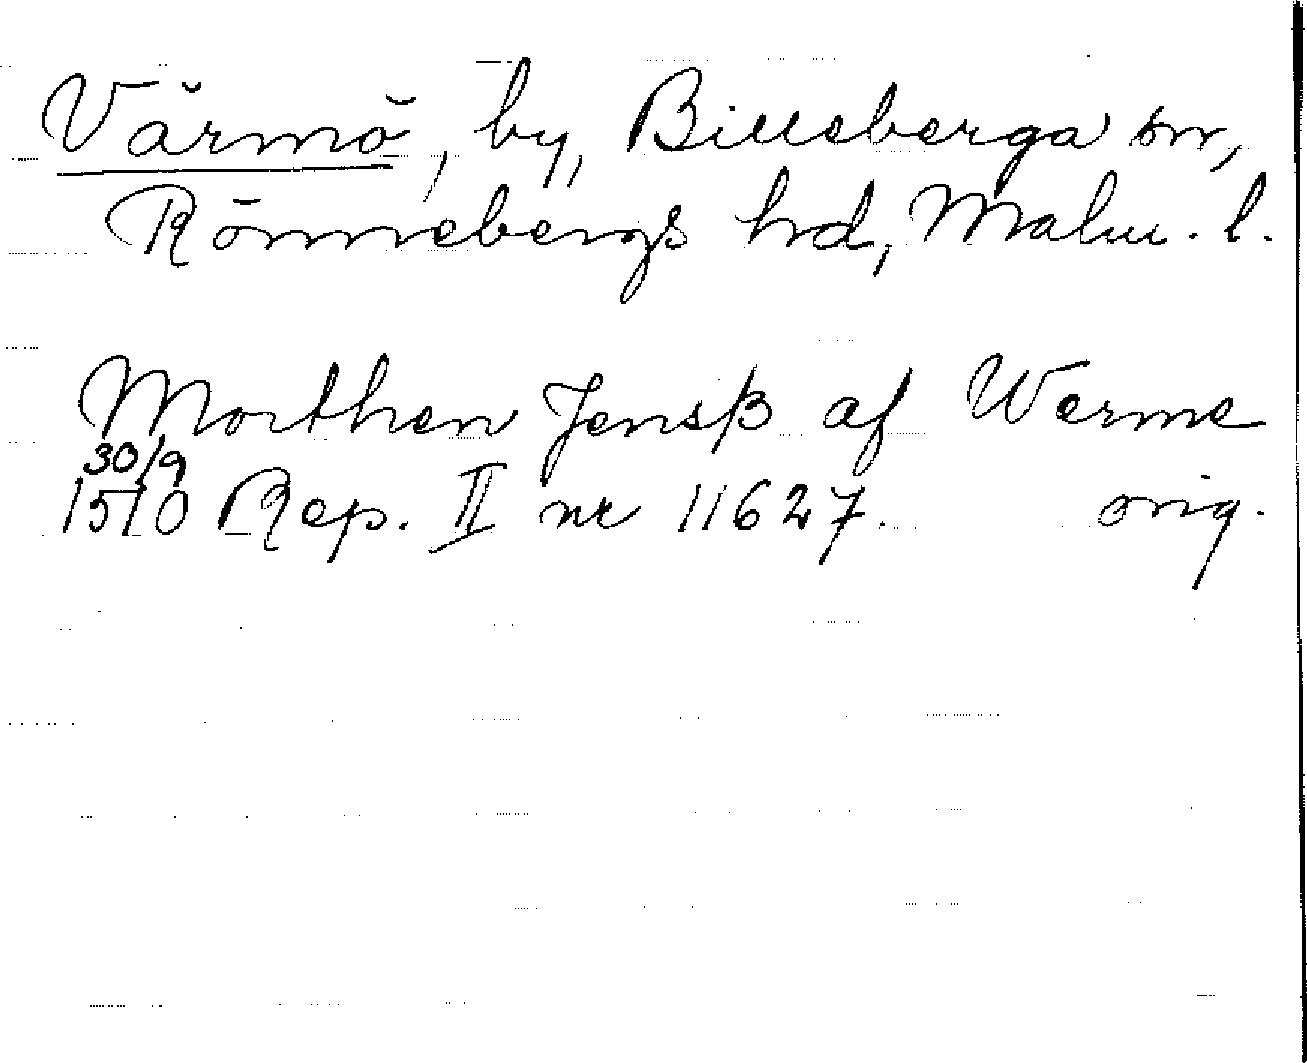 Värmö, by, Billeberga sn,
Rönnebergs hd, Malm. l.
Morthen Jensß af Werme
30/9
1510 Rep. II nr 11627. orig.